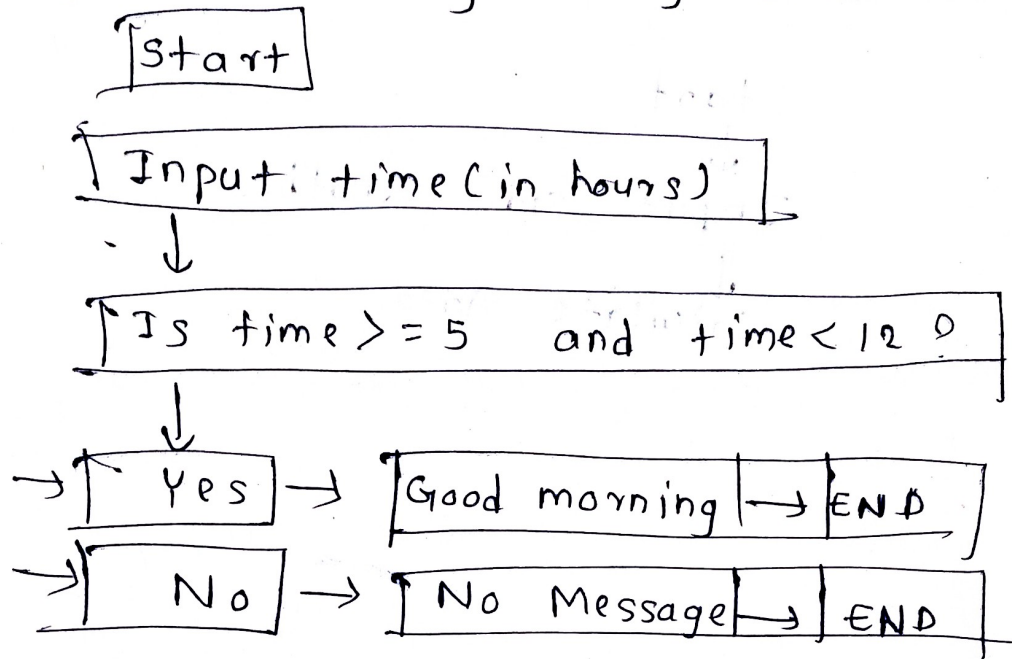 Start
Input: time (in hours)
↓
Is time >= 5 and time < 12 ?
↓
→ Yes → Good morning → END
→ No → No Message → END